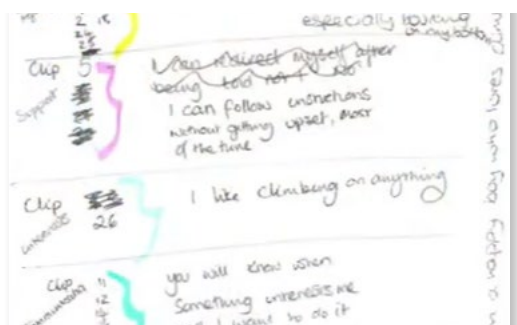 2 18
24
25
especially
on anything
Clip 5
Support
I can redirect myself after
being told not "No"
I can follow instructions
without getting upset, most
of the time
Clip
26
interests
I like climbing on anything
Clip 11
12
you will know when
Something interests me
I want to do it
a happy boy who loves